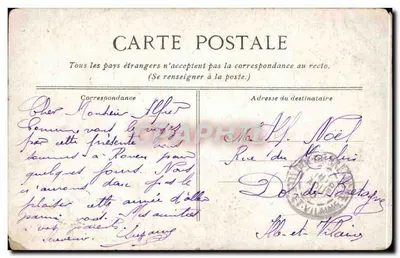 CARTE POSTALE
Tous les pays étrangers n'acceptent pas la correspondance au recto.
(Se renseigner à la poste.)
Correspondance
Adresse du destinataire
Cher Monsieur Alfred
Comme vous le voyez
par cette présente nous
sommes à Rouen pour
quelques jours. Nous
n'aurons donc pas le
plaisir cette année d'aller
vous. Mes amitiés
à vos parents.
Suzanne
Mr Alf Noël
Rue du Moulin
Dol de Bretagne
Ille-et-Vilaine